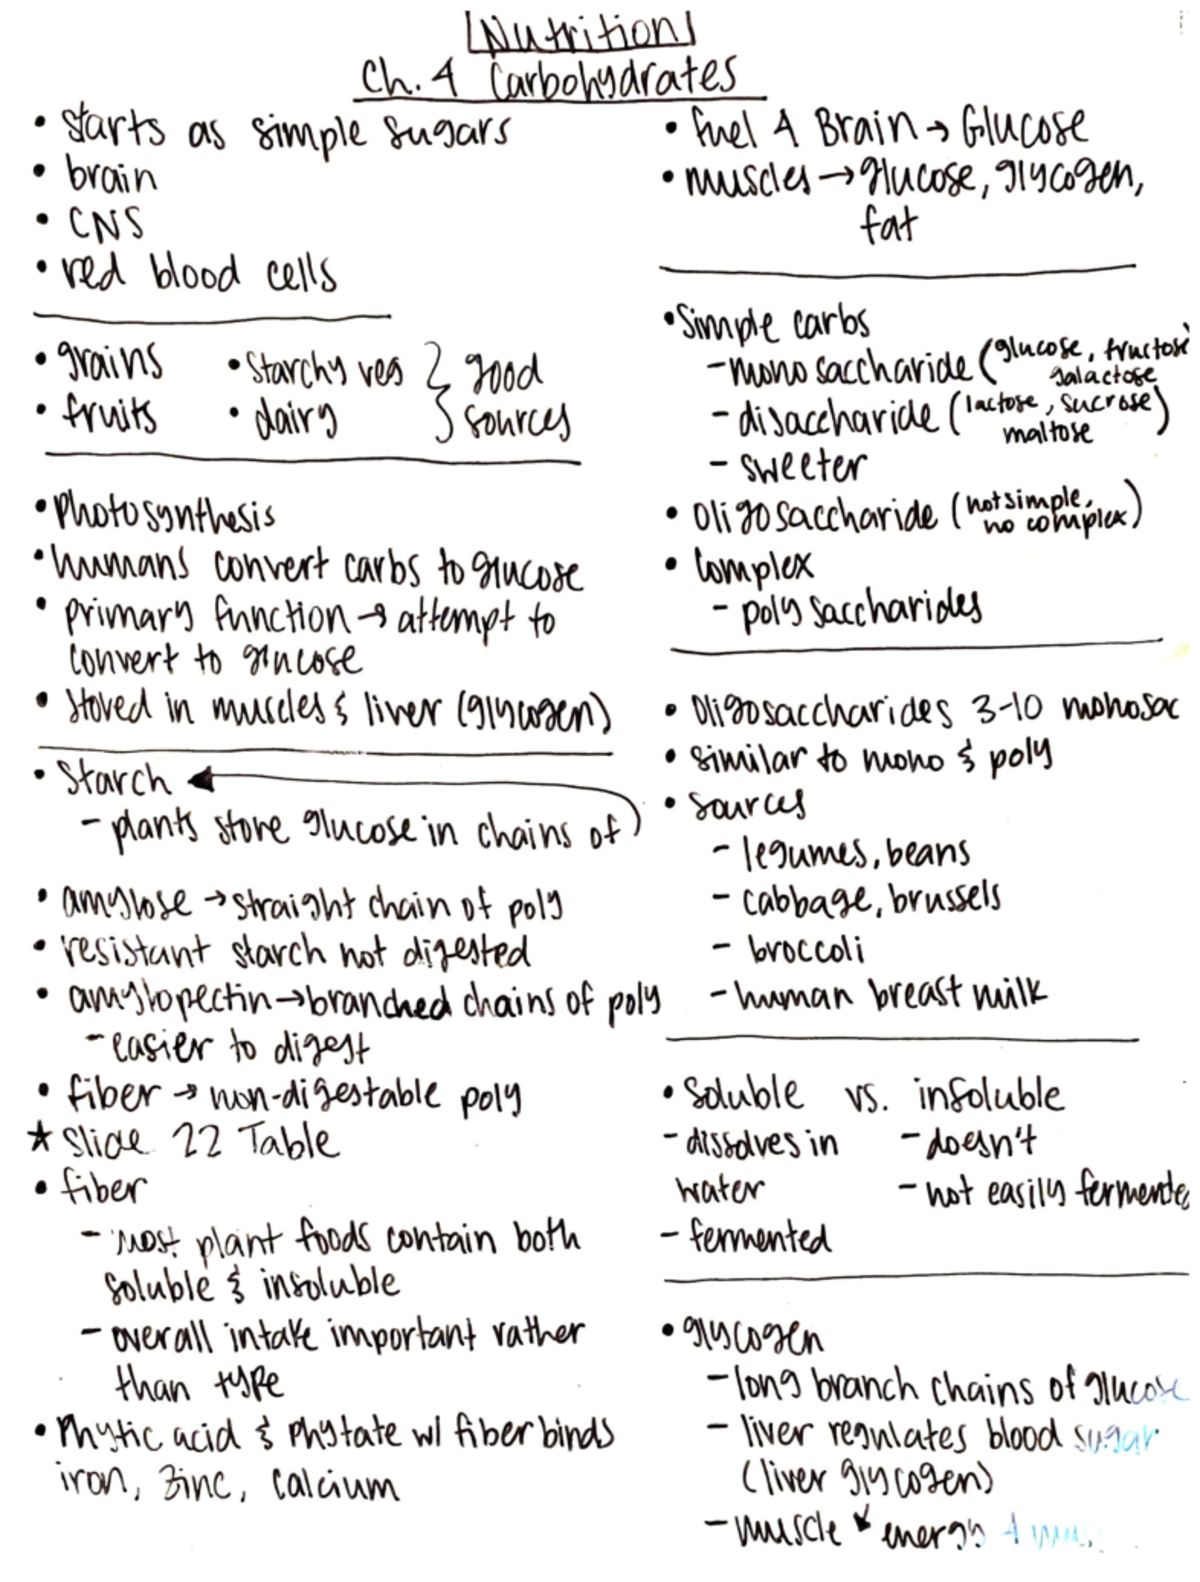 Nutrition
Ch. 4 Carbohydrates
• starts as simple sugars
• brain
• CNS
• red blood cells
• grains • starchy veg } good
• fruits • dairy } sources
• Photosynthesis
• humans convert carbs to glucose
• primary function → attempt to
convert to glucose
• stored in muscles & liver (glycogen)
• Starch
- plants store glucose in chains of
• amylose → straight chain of poly
• resistant starch not digested
• amylopectin → branched chains of poly
- easier to digest
• fiber → non-digestable poly
★ Slide 22 Table
• fiber
- most plant foods contain both
soluble & insoluble
- overall intake important rather
than type
• Phytic acid & Phytate w/ fiber binds
iron, zinc, calcium
• fuel 4 Brain → Glucose
• muscles → glucose, glycogen,
fat
• Simple carbs
- mono saccharide (glucose, fructose
galactose
- disaccharide (lactose, sucrose)
maltose
- sweeter
• Oligosaccharide (not simple,
no complex)
• Complex
- poly saccharides
• Oligosaccharides 3-10 monosac
• similar to mono & poly
• sources
- legumes, beans
- cabbage, brussels
- broccoli
- human breast milk
• Soluble vs. insoluble
- dissolves in - doesn't
water - not easily fermented
- fermented
• glycogen
- long branch chains of glucose
- liver regulates blood sugar
(liver glycogen)
- muscle energy 4